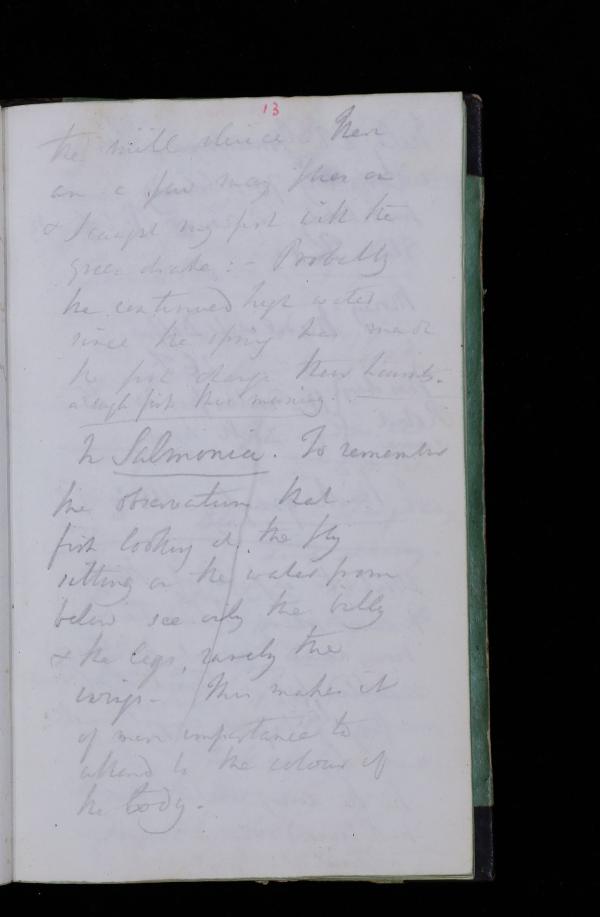 13
the mill sluice There
are a few may flies on
& I caught my fish with the
green drake : - Probably
the continued high water
since the spring has made
the fish change their haunts.
a rough fish this morning.
In Salmonia. To remember
the observation that
fish looking at the fly
sitting on the water from
below see only the belly
& the legs, rarely the
wings - This makes it
of more importance to
attend to the colour of
the body.